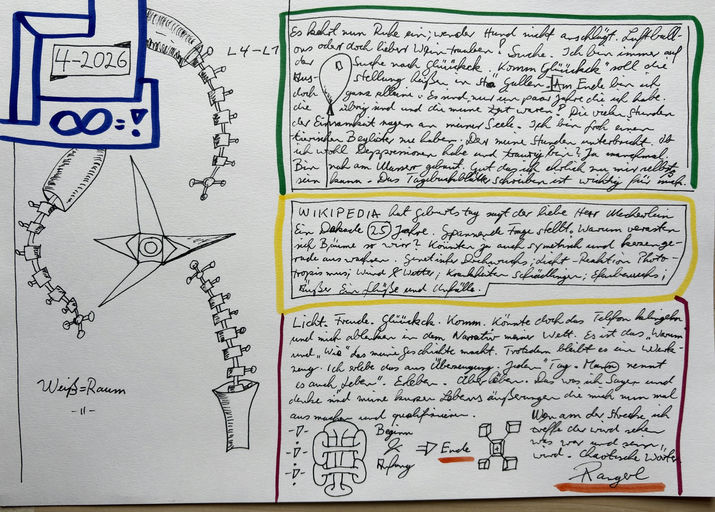 4-2026
∞=!
L4-L7
Weiß=Raum
-"-
Es kehrt nun Ruhe ein, wenn der Hund nicht anschlägt. Luftball-
ons oder doch lieber Weintrauben? Suche. Ich bin immer auf
der Suche nach Glüückck. Komm Glüückck" soll die
Ausstellung heißen in St. Gallen. Am Ende bin ich
doch ganz alleine. Es sind nur ein paar Jahre die ich habe
die übrig sind und die meine Zeit wert. Die vielen Stunden
der Einsamkeit nagen an meiner Seele. Ich bin froh einen
tierischen Begleiter zu haben. Der meine Stunden unterbricht. Ob
ich wohl Depressionen habe und traurig bin? Ja manchmal.
Bin nah am Wasser gebaut, gut das ich ehrlich zu mir selbst
sein kann. Das Tagebuchblätter schreiben ist wichtig für mich.
WIKIPEDIA hat Geburtstag sagt der liebe Herr
Ein Dekade 25 Jahre. Spannende Frage stellt. Warum verästen
sich Bäume so wirr? Könnten ja auch symetrisch und kerzenge-
rade aus wachsen. Genetische Dickwuchs; Licht-Reaktion Photo-
tropismus; Wind & Wetter; Krankheiten Schädlinge;
Äußer Einflüße und Unfälle.
Licht. Freude. Glüückck. Komm. Könnte doch das Telefon klingeln
und mich ablenken in dem Narrativ meiner Welt. Es ist das „Warum
und „Wie" das meine Geschichte macht. Trotzdem bleibt es ein Werk-
zeug. Ich erlebe das aus Überzeugung. Jeden Tag. Mann nennt
es auch Leben". Erleben. Überleben. Das was ich Sage und
denke sind meine kurzen Lebensäußerungen die mich nun mal
aus machen und
Beginn
&
Anfang
⇒ Ende
Wen am der Strecke ich
treffe der wird sehen
was war und sein
wird. Chaotische Worte
Rangerl